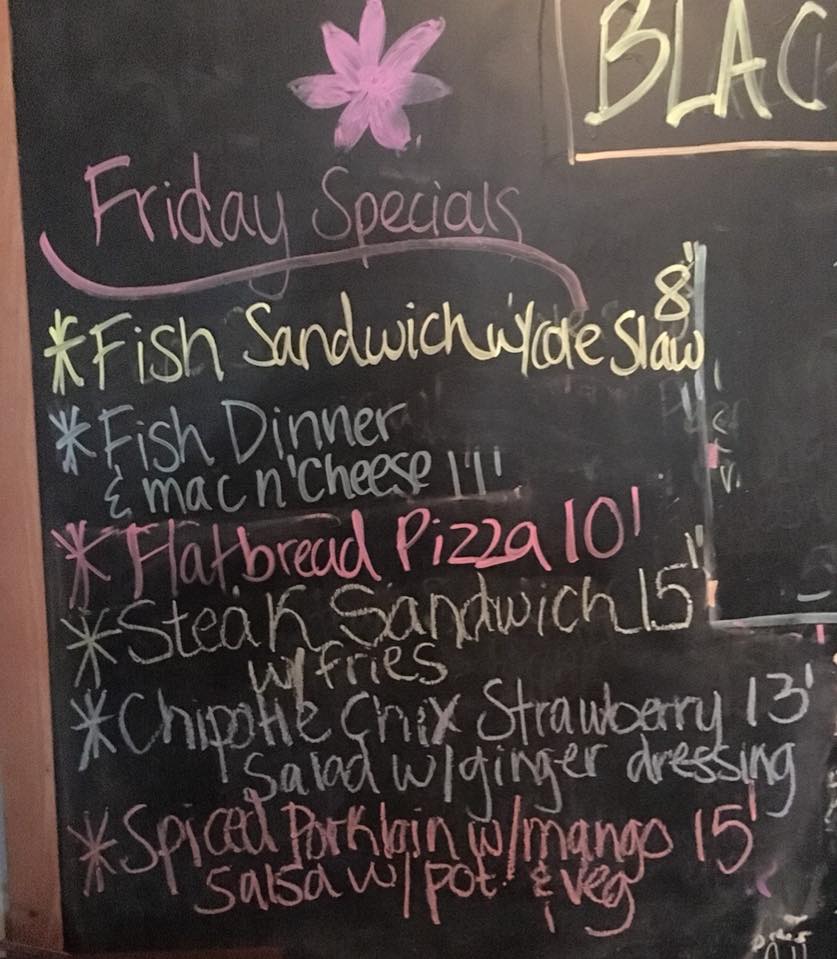 BLAC
Friday Specials
8"
*Fish Sandwich w/cole Slaw
*Fish Dinner
& mac n' Cheese 11'
*Flatbread Pizza 10'
*Steak Sandwich 15"
w/ fries
*Chipotle Chix Strawberry 13'
Salad w/ginger dressing
*Spiced Porkloin w/mango 15'
Salsa w/ pot. & veg